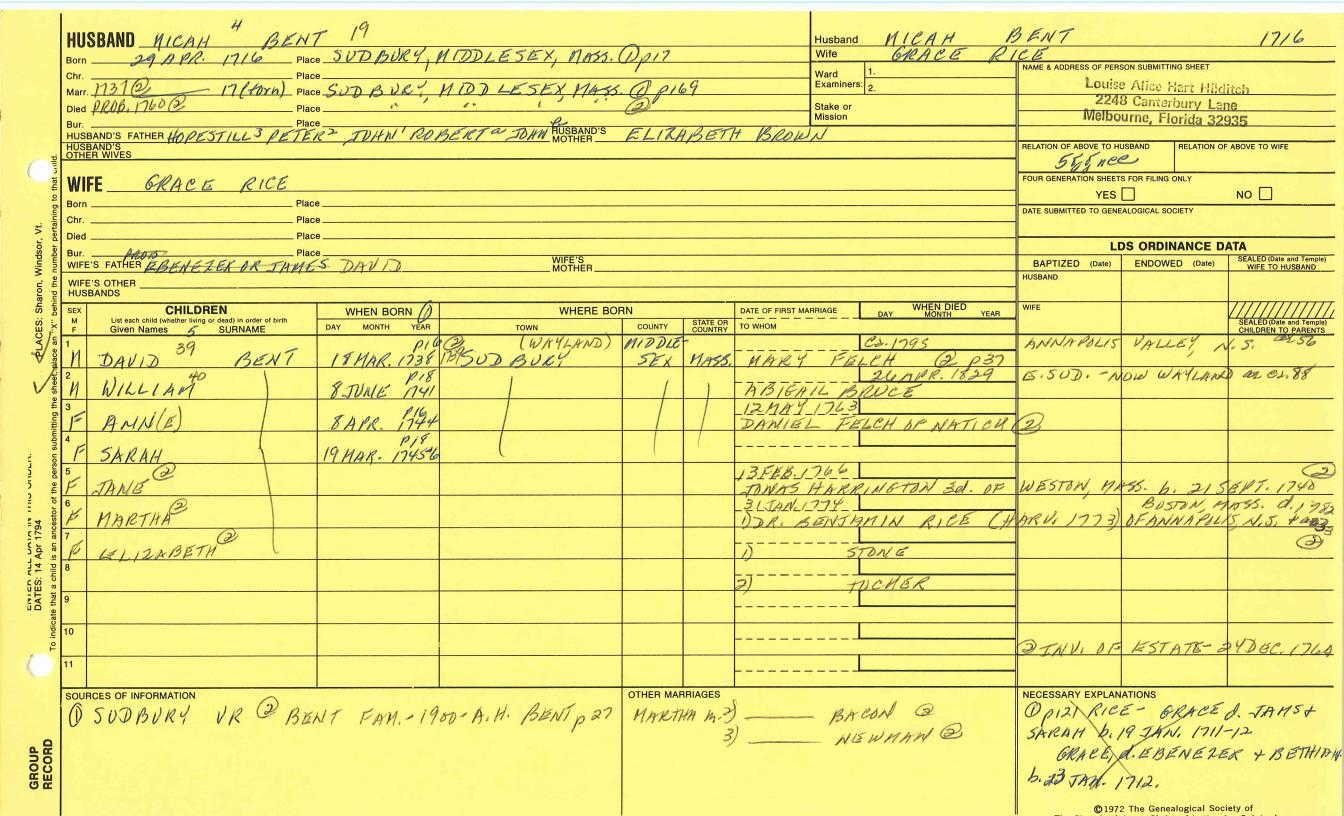 HUSBAND MICAH 4 BENT 19
Born 29 APR. 1716 Place SUDBURY, MIDDLESEX, MASS. ① p17
Chr. Place
Marr. 1737 ② 17(torn) Place SUDBURY, MIDDLESEX, MASS. ① p169
Died PROB. 1760 ② Place " " " " ②
Bur. Place
HUSBAND'S FATHER HOPESTILL 3 PETER 2 JOHN 1 ROBERT a JOHN HUSBAND'S MOTHER ELIZABETH BROWN
HUSBAND'S OTHER WIVES
Husband MICAH BENT 1716
Wife GRACE RICE
Ward Examiners: 1.
2.
Stake or Mission
NAME & ADDRESS OF PERSON SUBMITTING SHEET
Louise Alice Hart Hilditch
2248 Canterbury Lane
Melbourne, Florida 32935
RELATION OF ABOVE TO HUSBAND RELATION OF ABOVE TO WIFE
FOUR GENERATION SHEETS FOR FILING ONLY
YES NO
DATE SUBMITTED TO GENEALOGICAL SOCIETY
WIFE GRACE RICE
Born Place
Chr. Place
Died Place
Bur. Place
PROB
WIFE'S FATHER EBENEZER OR JAMES DAVID WIFE'S MOTHER
WIFE'S OTHER HUSBANDS
LDS ORDINANCE DATA
BAPTIZED (Date) ENDOWED (Date) SEALED (Date and Temple) WIFE TO HUSBAND
HUSBAND
WIFE
SEALED (Date and Temple) CHILDREN TO PARENTS
SEX M F
CHILDREN
List each child (whether living or dead) in order of birth
Given Names 5 SURNAME
WHEN BORN ①
DAY MONTH YEAR
WHERE BORN
TOWN COUNTY STATE OR COUNTRY
DATE OF FIRST MARRIAGE
TO WHOM
WHEN DIED
DAY MONTH YEAR
1 39 p16 ② (WAYLAND) MIDDLE- Ca. 1795
M DAVID BENT 18 MAR. 1738 SUDBURY SEX MASS. MARY FELCH ② p37 ANNAPOLIS VALLEY, N.S.
2 40 p18 26 APR. 1829
M WILLIAM 8 JUNE 1741 ABIGAIL BRUCE E. SUD. - NOW WAYLAND ae ca. 88
3 p16 12 MAY 1763
F ANN(E) 8 APR. 1744 DANIEL FELCH OF NATICK ②
4 p18
F SARAH 19 MAR. 1745-6
5 13 FEB. 1766 ②
F JANE ② JONAS HARRINGTON 3d. OF WESTON, MASS. b. 21 SEPT. 1740
6 31 JAN. 1774 BOSTON, MASS. d.
F MARTHA ② 1) DR. BENJAMIN RICE (HARV. 1773) OF ANNAPOLIS, N.S.
7 ②
F ELIZABETH ② 1) STONE
8
2) TUCHER
9
10
② INV. OF ESTATE - 24 DEC. 1760
11
SOURCES OF INFORMATION
① SUDBURY VR ② BENT FAM. - 1900 - A.H. BENT p 27
OTHER MARRIAGES
MARTHA m. 2) BACON ②
3) NEWMAN ②
NECESSARY EXPLANATIONS
① p121 RICE - GRACE d. JAMS +
SARAH b. 19 JAN. 1711-12
GRACE, d. EBENEZER + BETHIAH
b. 23 JAN. 1712.
©1972 The Genealogical Society of
ENTER ALL DATA IN THIS ORDER:
DATES: 14 Apr 1794
PLACES: Sharon, Windsor, Vt.
To indicate that a child is an ancestor of the person submitting the sheet, place an "X" behind the number pertaining to that child.
GROUP RECORD